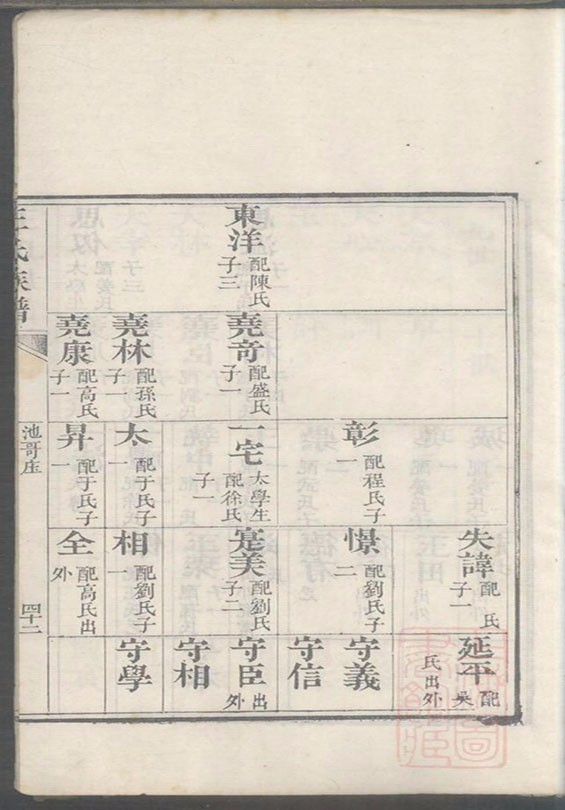 東洋 配陳氏子三
堯奇 配盛氏子一
堯林 配孫氏子一
堯康 配高氏子一
彰 配程氏子一
一宅 太學生配徐氏子一
太 配于氏子一
昇 配于氏子一
失諱 配 氏子一
憬 配劉氏子二
寔美 配劉氏子二
相 配劉氏子一
全 配高氏出外
延平 配吳氏出外
守義
守信
守臣 出外
守相
守學
王氏族譜
池哥庄
四十二